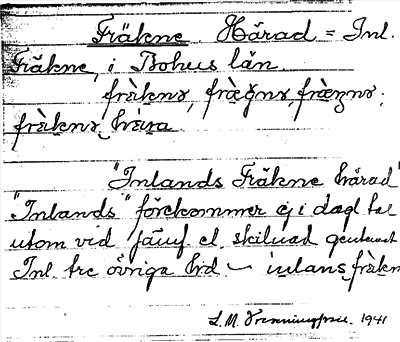 Fräkne Härad = Inl.
Fräkne, i Bohus län.
fràknə, fræg̃nə, fræznə;
fràknə hæ̀ra
"Inlands Fräkne härad"
"Inlands" förekommer ej i dagl. tal
utom vid jämf. el. skillnad gentemot
Inl. tre övriga hrd. – inlans fràkn
L. M. 1941